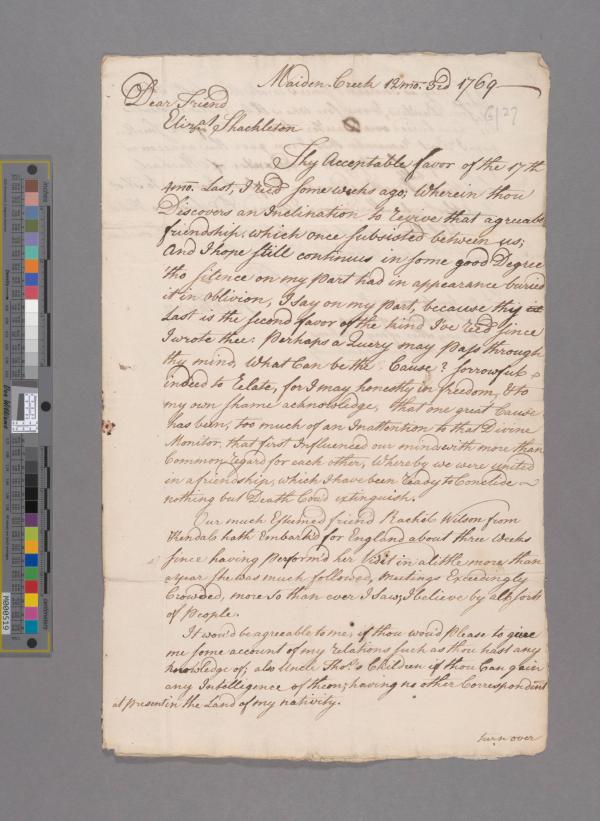 Maiden Creek 12mo. 3rd 1769
Dear Friend
Elizath Shackleton
Thy Acceptable favor of the 17th
4mo. Last, I recd some weeks ago; Wherein thou
Discovers an Inclination to revive that agreeable
friendship which once subsisted between us;
And I hope still continues in some good Degree
tho silence on my part had in appearance buried
it in oblivion, I say on my part, because this
Last is the second favor of the kind I've recd since
I wrote thee: Perhaps a Query may Pass through
thy mind, What Can be the Cause? sorrowful
indeed to relate, for I may honestly in freedom, & to
my own shame acknowledge, that one great Cause
has been, too much of an Inattention to that Divine
Monitor, that first Influenced our minds with more than
Common regard for each other, Whereby we were united
in a friendship, which I have been ready to Conclude
nothing but Death Coud extinguish.
Our much Esteemed friend Rachel Wilson from
Kendale hath Embarkd for England about three Weeks
since having Performd her Visit in a little more than
a year she was much followed, Meetings Exceedingly
Crowded, more so than ever I saw, I believe by all sorts
of People.
It woud be agreeable to me, if thou woud Please to give
me some account of my relations such as thou hast any
knowledge of; also Uncle Thos. Children if thou Can gain
any Intelligence of them; having no other Correspondent
at present in the Land of my nativity.
turn over
inches
centimeters
M000519
Don Williams